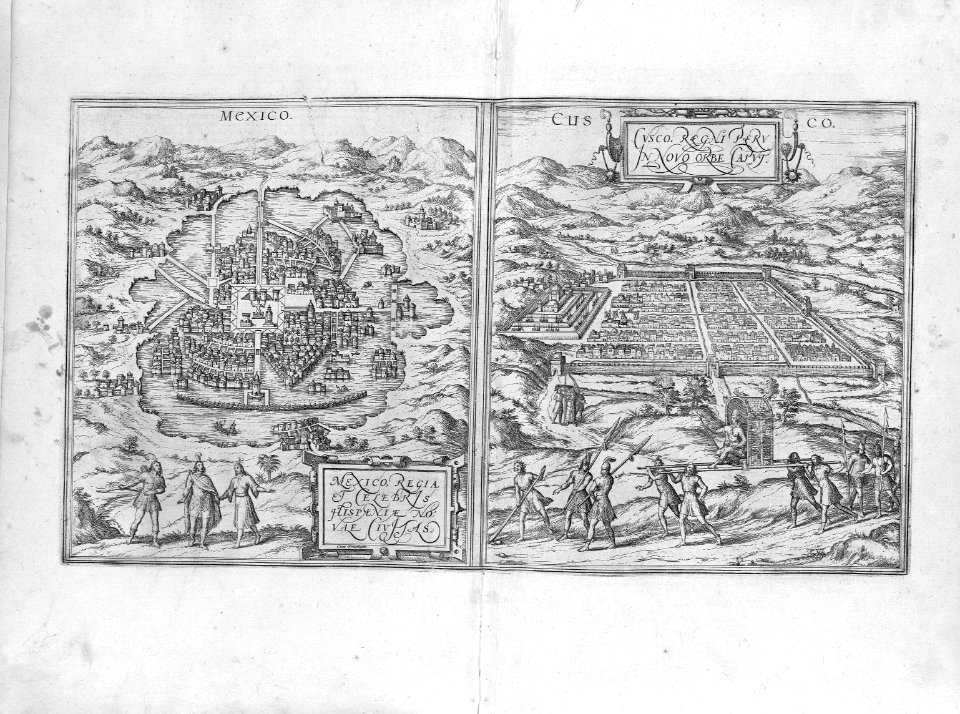 MEXICO.
CUS CO.
CVSCO, REGNI PERV
IN NOVO ORBE CAPVT.
MEXICO, REGIA
ET CELEBRIS
HISPANIÆ NO-
VAE CIVITAS.
Cum Priuilegio